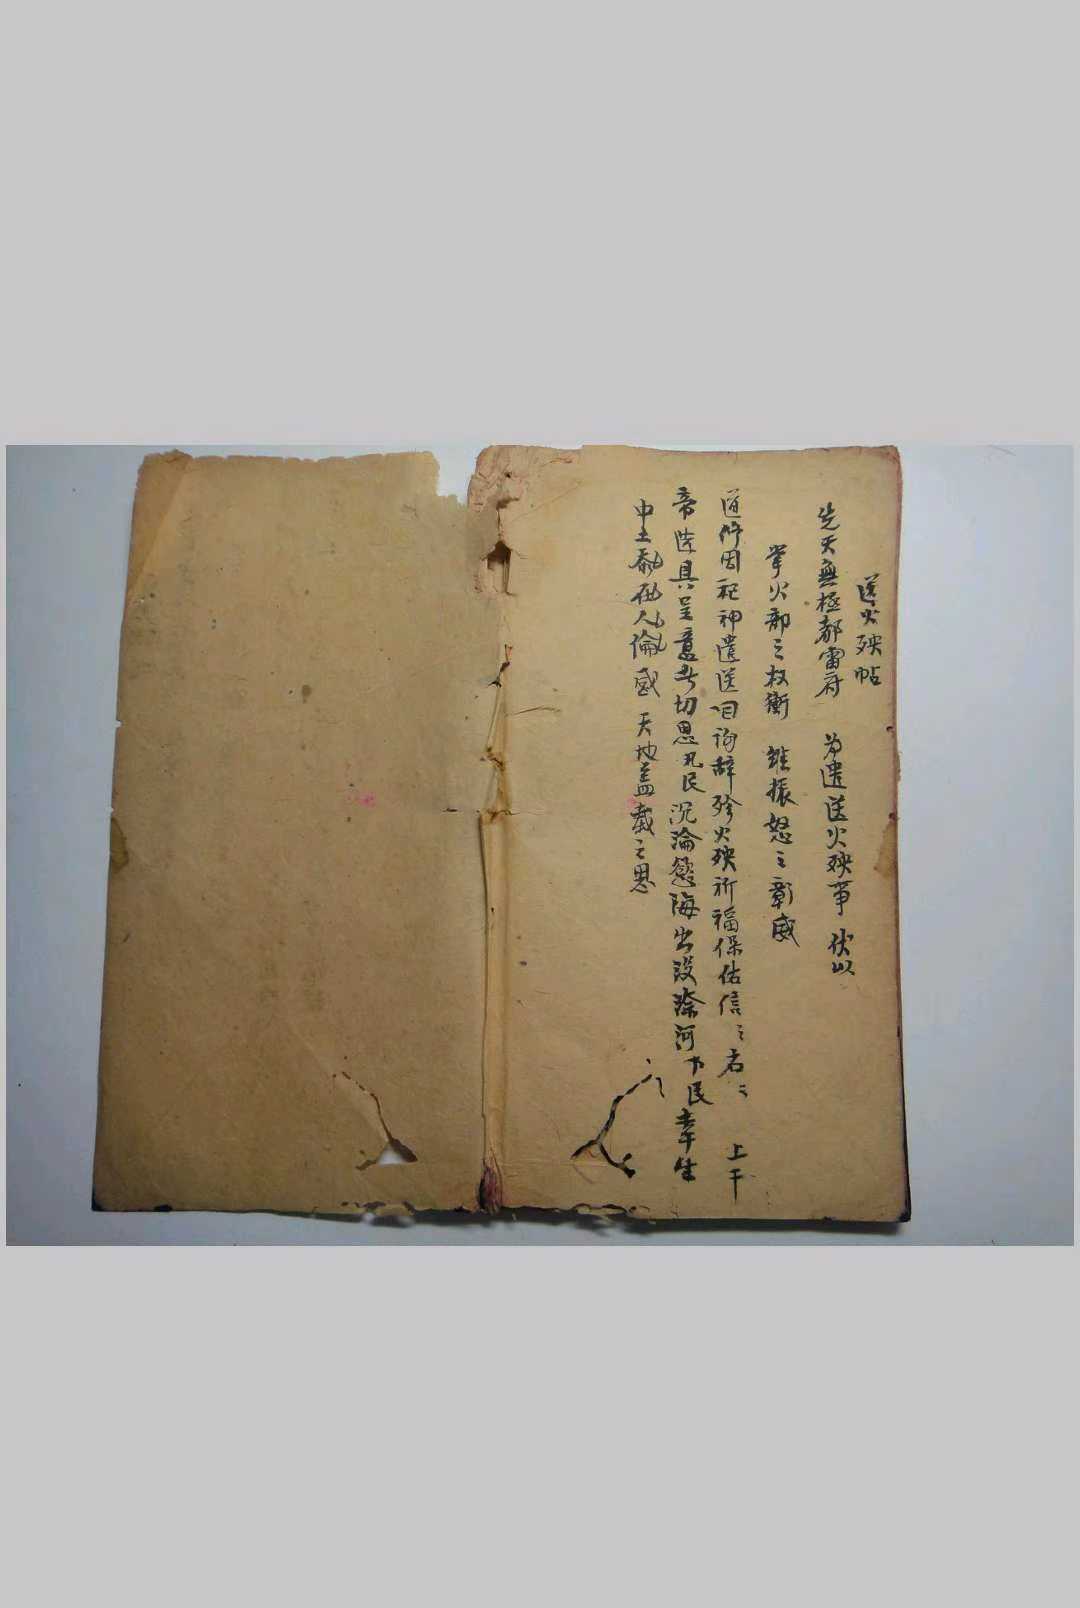 送火殃帖
先天無極都雷府 為遣送火殃事 伏以
掌火部之权衡 維振怒之彰威
道修因祀神遣送回詞辞殄火殃祈福保佑信〻名〻 上干
帝造具呈意者切思凡民沉淪慾海出没深河下民幸生
中土忝在人倫感 天地盖载之恩